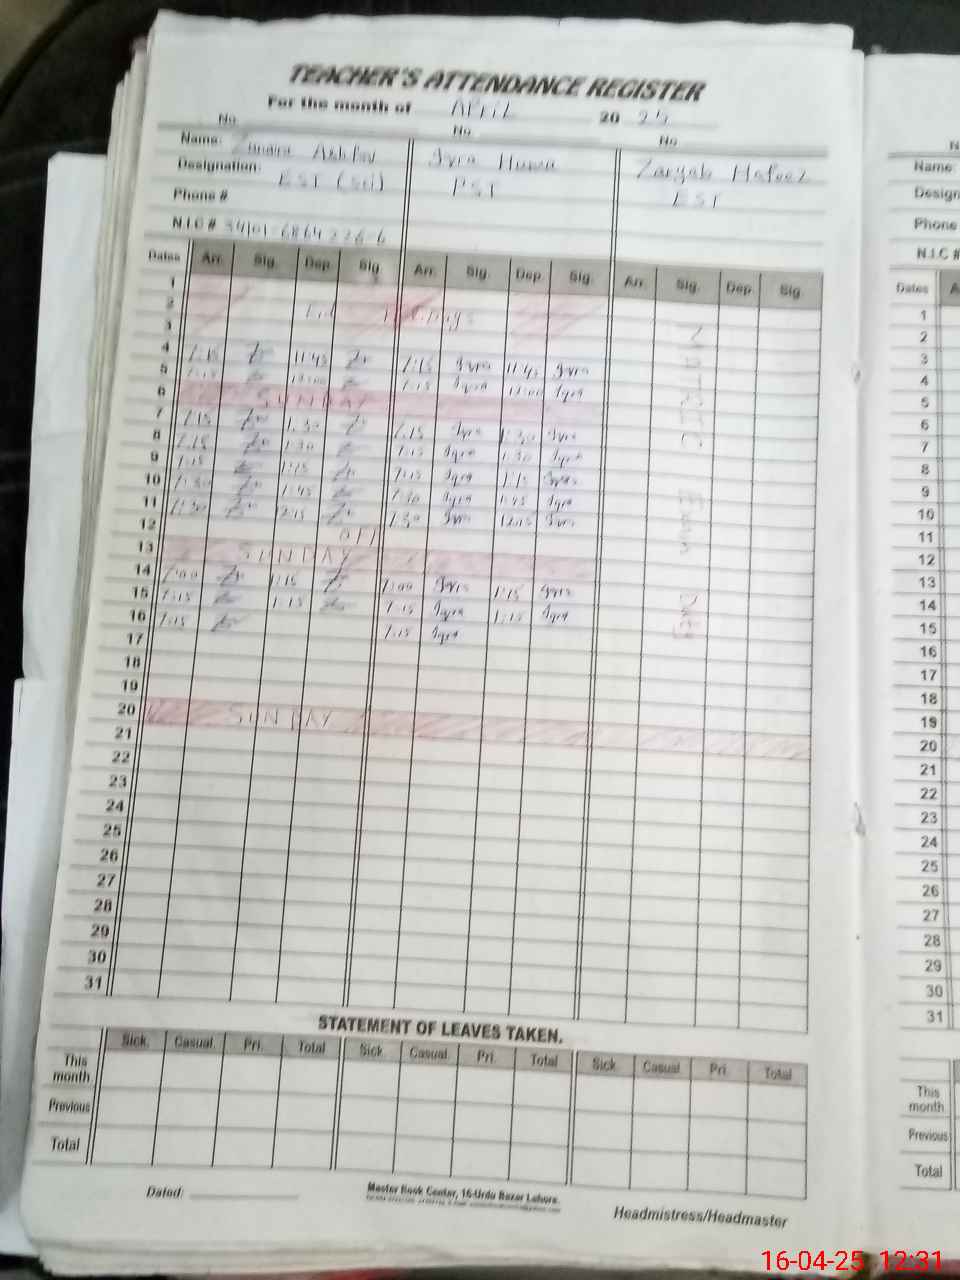 TEACHER'S ATTENDANCE REGISTER
For the month of APRIL 20 25
No. No. No
Name: Ayra Huma Zaryab Hafeez
Designation: EST (Sci) PST EST
Phone #
N.I.C #
Dates Arr. Sig. Dep. Sig Arr. Sig. Dep. Sig. Arr. Sig. Dep. Sig.
1
2 Eid
3
4 7:15 11:45 7:15 11:45
5 7:15 12:00 7:15 12:00
6 SUNDAY
7 7:15 1:30 7:15 1:30
8 7:15 1:30 7:15 1:30
9 7:15 1:15 7:15 1:15
10 7:30 1:45 7:30 1:45
11 7:30 12:15 7:30 12:15
12 OFF
13 SUNDAY
14 7:00 1:15 7:00 1:15
15 7:15 1:15 7:15 1:15
16 7:15 7:15
17
18
19
20 SUNDAY
21
22
23
24
25
26
27
28
29
30
31
MATRIC Exam Duty
STATEMENT OF LEAVES TAKEN.
Sick. Casual. Pri. Total Sick. Casual. Pri. Total Sick. Casual Pri. Total
This month
Previous
Total
Dated:
Master Book Center, 16-Urdu Bazar Lahore.
Headmistress/Headmaster
Name:
Phone
N.I.C #
Dates
1
2
3
4
5
6
7
8
9
10
11
12
13
14
15
16
17
18
19
20
21
22
23
24
25
26
27
28
29
30
31
This month
Previous
Total
16-04-25 12:31